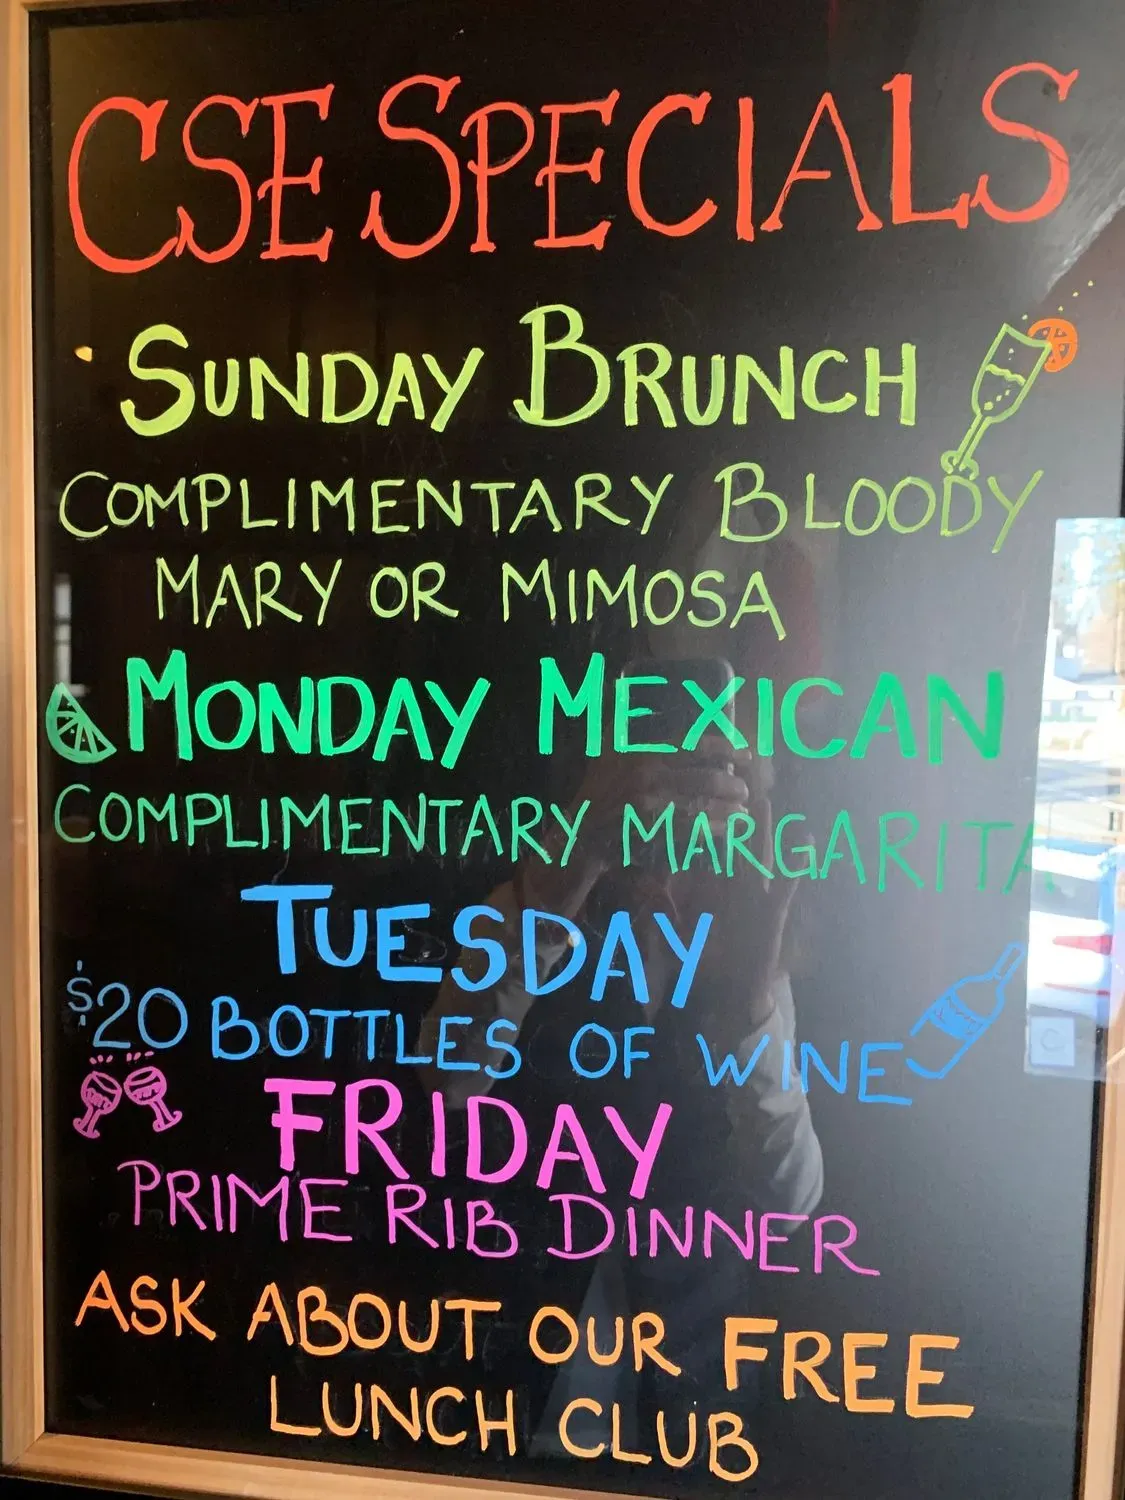 CSE SPECIALS
SUNDAY BRUNCH
COMPLIMENTARY BLOODY
MARY OR MIMOSA
MONDAY MEXICAN
COMPLIMENTARY MARGARITA
TUESDAY
$20 BOTTLES OF WINE
FRIDAY
PRIME RIB DINNER
ASK ABOUT OUR FREE
LUNCH CLUB